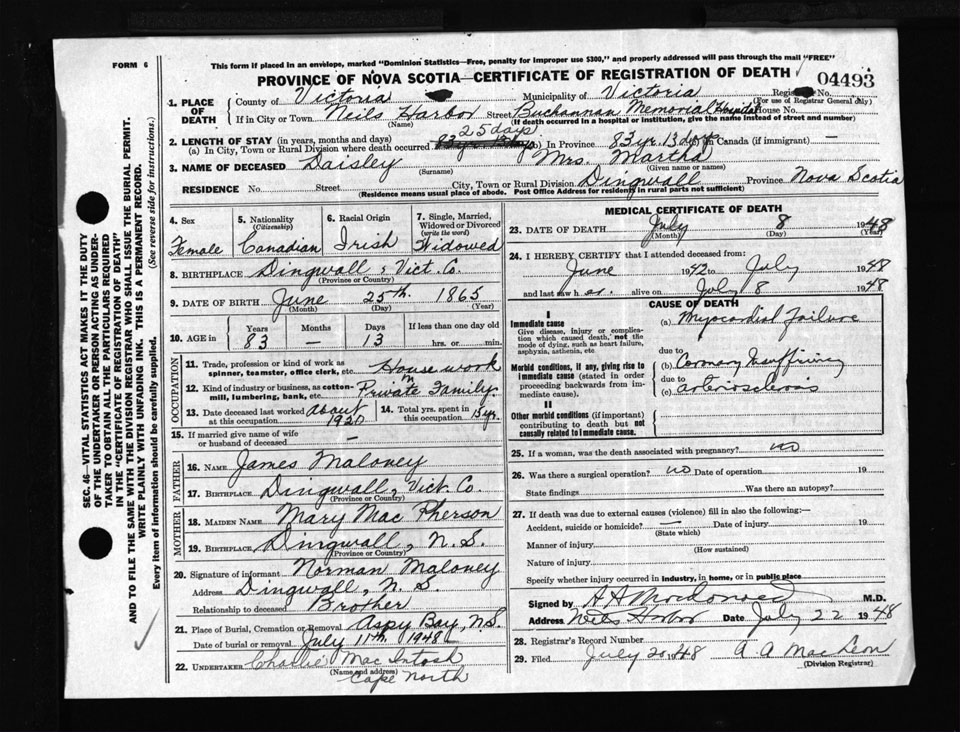 FORM 6
This form if placed in an envelope, marked "Dominion Statistics—Free, penalty for improper use $300," and properly addressed will pass through the mail "FREE"
PROVINCE OF NOVA SCOTIA—CERTIFICATE OF REGISTRATION OF DEATH
04493
1. PLACE OF DEATH
County of Victoria Municipality of Victoria Registered No.
(For use of Registrar General only)
If in City or Town Neils Harbor Street Buchannan Memorial Hospital House No.
(Name) (If death occurred in a hospital or institution, give the name instead of street and number)
25 days
2. LENGTH OF STAY (in years, months and days)
(a) In City, Town or Rural Division where death occurred 83 yr. 13 days (b) In Province 83 yr. 13 days (c) In Canada (if immigrant) —
3. NAME OF DECEASED Daisley Mrs. Martha
(Surname) (Given name or names)
RESIDENCE No. Street City, Town or Rural Division Dingwall Province Nova Scotia
(Residence means usual place of abode. Post Office Address for residents in rural parts not sufficient)
4. Sex Female
5. Nationality (Citizenship) Canadian
6. Racial Origin Irish
7. Single, Married, Widowed or Divorced (write the word) Widowed
8. BIRTHPLACE Dingwall, Vict. Co.
(Province or Country)
9. DATE OF BIRTH June 25th 1865
(Month) (Day) (Year)
10. AGE in Years 83 Months — Days 13 If less than one day old
hrs. or min.
OCCUPATION
11. Trade, profession or kind of work as spinner, teamster, office clerk, etc. House work
12. Kind of industry or business, as cotton-mill, lumbering, bank, etc. in Private Family.
13. Date deceased last worked at this occupation about 1920
14. Total yrs. spent in this occupation
15. If married give name of wife or husband of deceased —
FATHER
16. NAME James Maloney
17. BIRTHPLACE Dingwall, Vict. Co.
(Province or Country)
MOTHER
18. MAIDEN NAME Mary Mac Pherson
19. BIRTHPLACE Dingwall, N.S.
(Province or Country)
20. Signature of informant Norman Maloney
Address Dingwall, N. S.
Relationship to deceased Brother
21. Place of Burial, Cremation or Removal Aspy Bay, N.S.
Date of burial or removal July 11th 1948
22. UNDERTAKER Charlie Mac Intosh
(Name and address) Cape North
MEDICAL CERTIFICATE OF DEATH
23. DATE OF DEATH July 8 1948
(Month) (Day) (Year)
24. I HEREBY CERTIFY that I attended deceased from:
June 1942 to July 1948
and last saw h er alive on July 8 1948
CAUSE OF DEATH
I
Immediate cause
Give disease, injury or complication which caused death, not the mode of dying, such as heart failure, asphyxia, asthenia, etc
(a) Myocardial Failure
due to
Morbid conditions, if any, giving rise to immediate cause (stated in order proceeding backwards from immediate cause).
(b) Coronary Insufficiency
due to
(c) arteriosclerosis
II
Other morbid conditions (if important) contributing to death but not causally related to immediate cause.
25. If a woman, was the death associated with pregnancy? no
26. Was there a surgical operation? no Date of operation 19
State findings Was there an autopsy?
27. If death was due to external causes (violence) fill in also the following:—
Accident, suicide or homicide? — Date of injury 19
(State which)
Manner of injury
(How sustained)
Nature of injury
Specify whether injury occurred in industry, in home, or in public place
Signed by M.D.
Address Neils Harbor Date July 22 1948
28. Registrar's Record Number
29. Filed July 20 1948 A. A Mac Leon
(Division Registrar)
SEC. 46—VITAL STATISTICS ACT MAKES IT THE DUTY
OF THE UNDERTAKER OR PERSON ACTING AS UNDER-
TAKER TO OBTAIN ALL THE PARTICULARS REQUIRED
IN THE "CERTIFICATE OF REGISTRATION OF DEATH"
AND TO FILE THE SAME WITH THE DIVISION REGISTRAR WHO SHALL ISSUE THE BURIAL PERMIT.
WRITE PLAINLY WITH UNFADING INK. THIS IS A PERMANENT RECORD.
Every item of information should be carefully supplied. (See reverse side for instructions.)